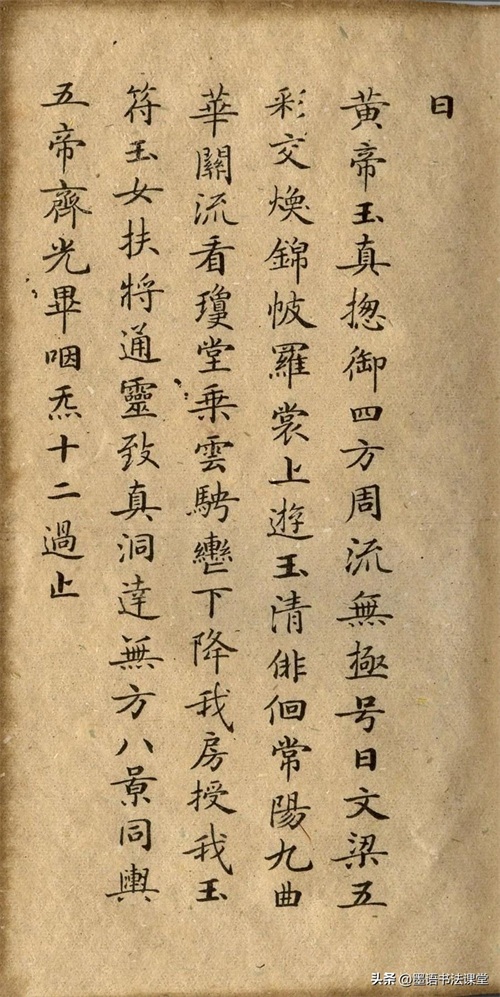 曰
黃帝玉真揔御四方周流無極号曰文梁五
彩交煥錦帔羅裳上遊玉清俳佪常陽九曲
華關流看瓊堂乗雲騁轡下降我房授我玉
符玉女扶將通靈致真洞達無方八景同輿
五帝齊光畢咽炁十二過止
头条 @墨语书法课堂